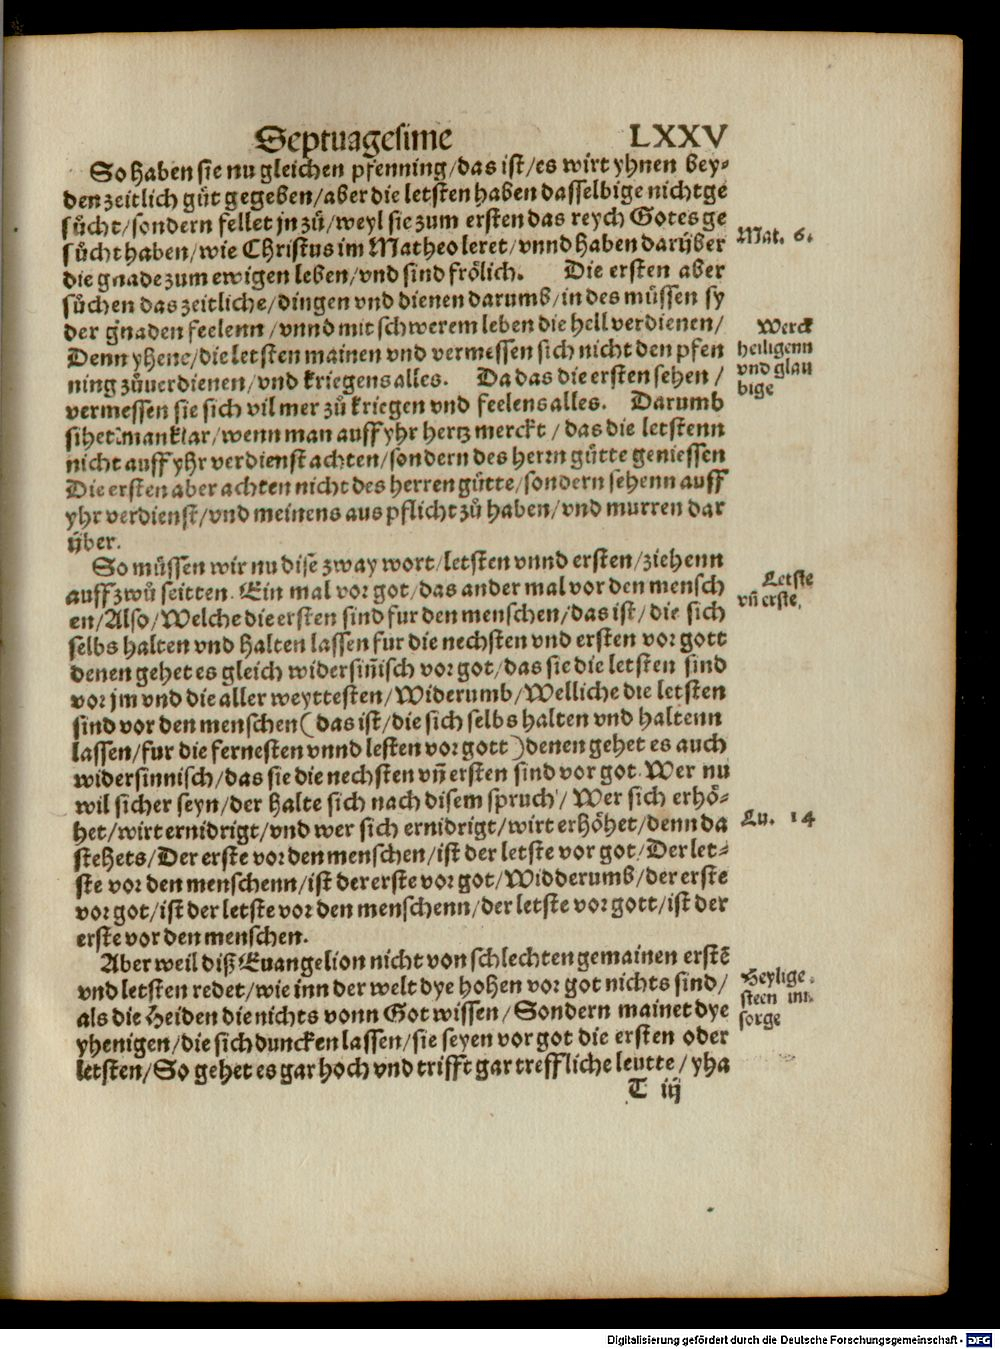 Septuagesime LXXV
So haben sie nu gleichen pfenning/das ist/es wirt yhnen bey-
den zeitlich gůt gegeben/aber die letsten haben dasselbige nicht ge
sůcht/sondern fellet jn zů/weyl sie zum ersten das reych Gotes ge
sůcht haben/wie Christus im Matheo leret/vnnd haben darüber
Mat. 6.
die gnade zum ewigen leben/vnd sind frölich. Die ersten aber
sůchen das zeitliche/dingen vnd dienen darumb/in des müssen sy
der gnaden feelenn/vnnd mit schwerem leben die hell verdienen/
Denn yhene/die letsten mainen vnd vermessen sich nicht den pfen
ning zůuerdienen/vnd kriegens alles. Da das die ersten sehen/
Werck
heiligenn
vnd glau
bige
vermessen sie sich vil mer zů kriegen vnd feelens alles. Darumb
sihet man klar/wenn man auff yhr hertz merckt/das die letstenn
nicht auff yhr verdienst achten/sondern des herrn gütte geniessen
Die ersten aber achten nicht des herren gütte/sondern sehenn auff
yhr verdienst/vnd meinens aus pflicht zů haben/vnd murren dar
über.
So müssen wir nu dise zway wort/letsten vnnd ersten/ziehenn
auff zwů seitten. Ein mal vor got/das ander mal vor den mensch
Letste
vñ erste,
en/Also/Welche die ersten sind fur den menschen/das ist/die sich
selbs halten vnd halten lassen fur die nechsten vnd ersten vor gott
denen gehet es gleich widersiñisch vor got/das sie die letsten sind
vor jm vnd die aller weyttesten/Widerumb/Welliche die letsten
sind vor den menschen(das ist/die sich selbs halten vnd haltenn
lassen/fur die fernesten vnnd lesten vor gott)denen gehet es auch
widersinnisch/das sie die nechsten vñ ersten sind vor got. Wer nu
wil sicher seyn/der halte sich nach disem spruch/Wer sich erhö-
het/wirt ernidrigt/vnd wer sich ernidrigt/wirt erhöhet/denn da
Lu. 14
stehets/Der erste vor den menschen/ist der letste vor got/Der let-
ste vor den menschenn/ist der erste vor got/Widderumb/der erste
vor got/ist der letste vor den menschenn/der letste vor gott/ist der
erste vor den menschen.
Aber weil diß Euangelion nicht von schlechten gemainen erstē
vnd letsten redet/wie inn der welt dye hohen vor got nichts sind/
als die Heiden die nichts vonn Got wissen/Sondern mainet dye
yhenigen/die sich duncken lassen/sie seyen vor got die ersten oder
Heylige-
steen inn
sorge
letsten/So gehet es gar hoch vnd trifft gar treffliche leutte/yha
T iij
Digitalisierung gefördert durch die Deutsche Forschungsgemeinschaft - DFG